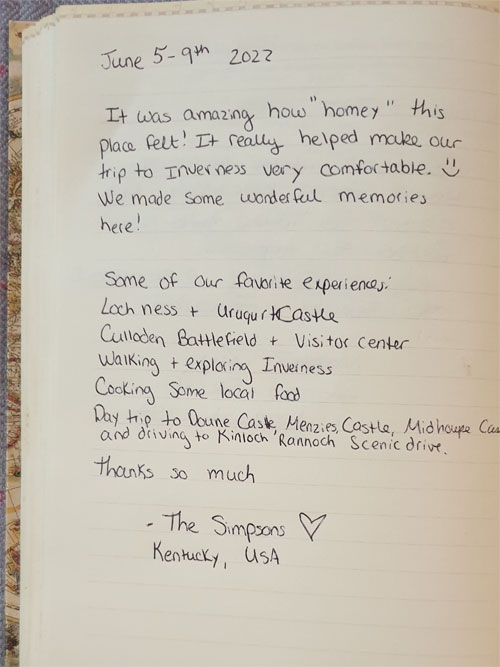 June 5-9th 2022
It was amazing how "homey" this
place felt! It really helped make our
trip to Inverness very comfortable. :)
We made some wonderful memories
here!
Some of our favorite experiences:
Loch ness + Uruqurt Castle
Culloden Battlefield + Visitor center
Walking + exploring Inverness
Cooking Some local food
Day trip to Doune Castle, Menzies, Castle, Midhoupe Cas
and driving to Kinloch Rannoch Scenic drive.
thanks so much
- The Simpsons ♡
Kentucky, USA